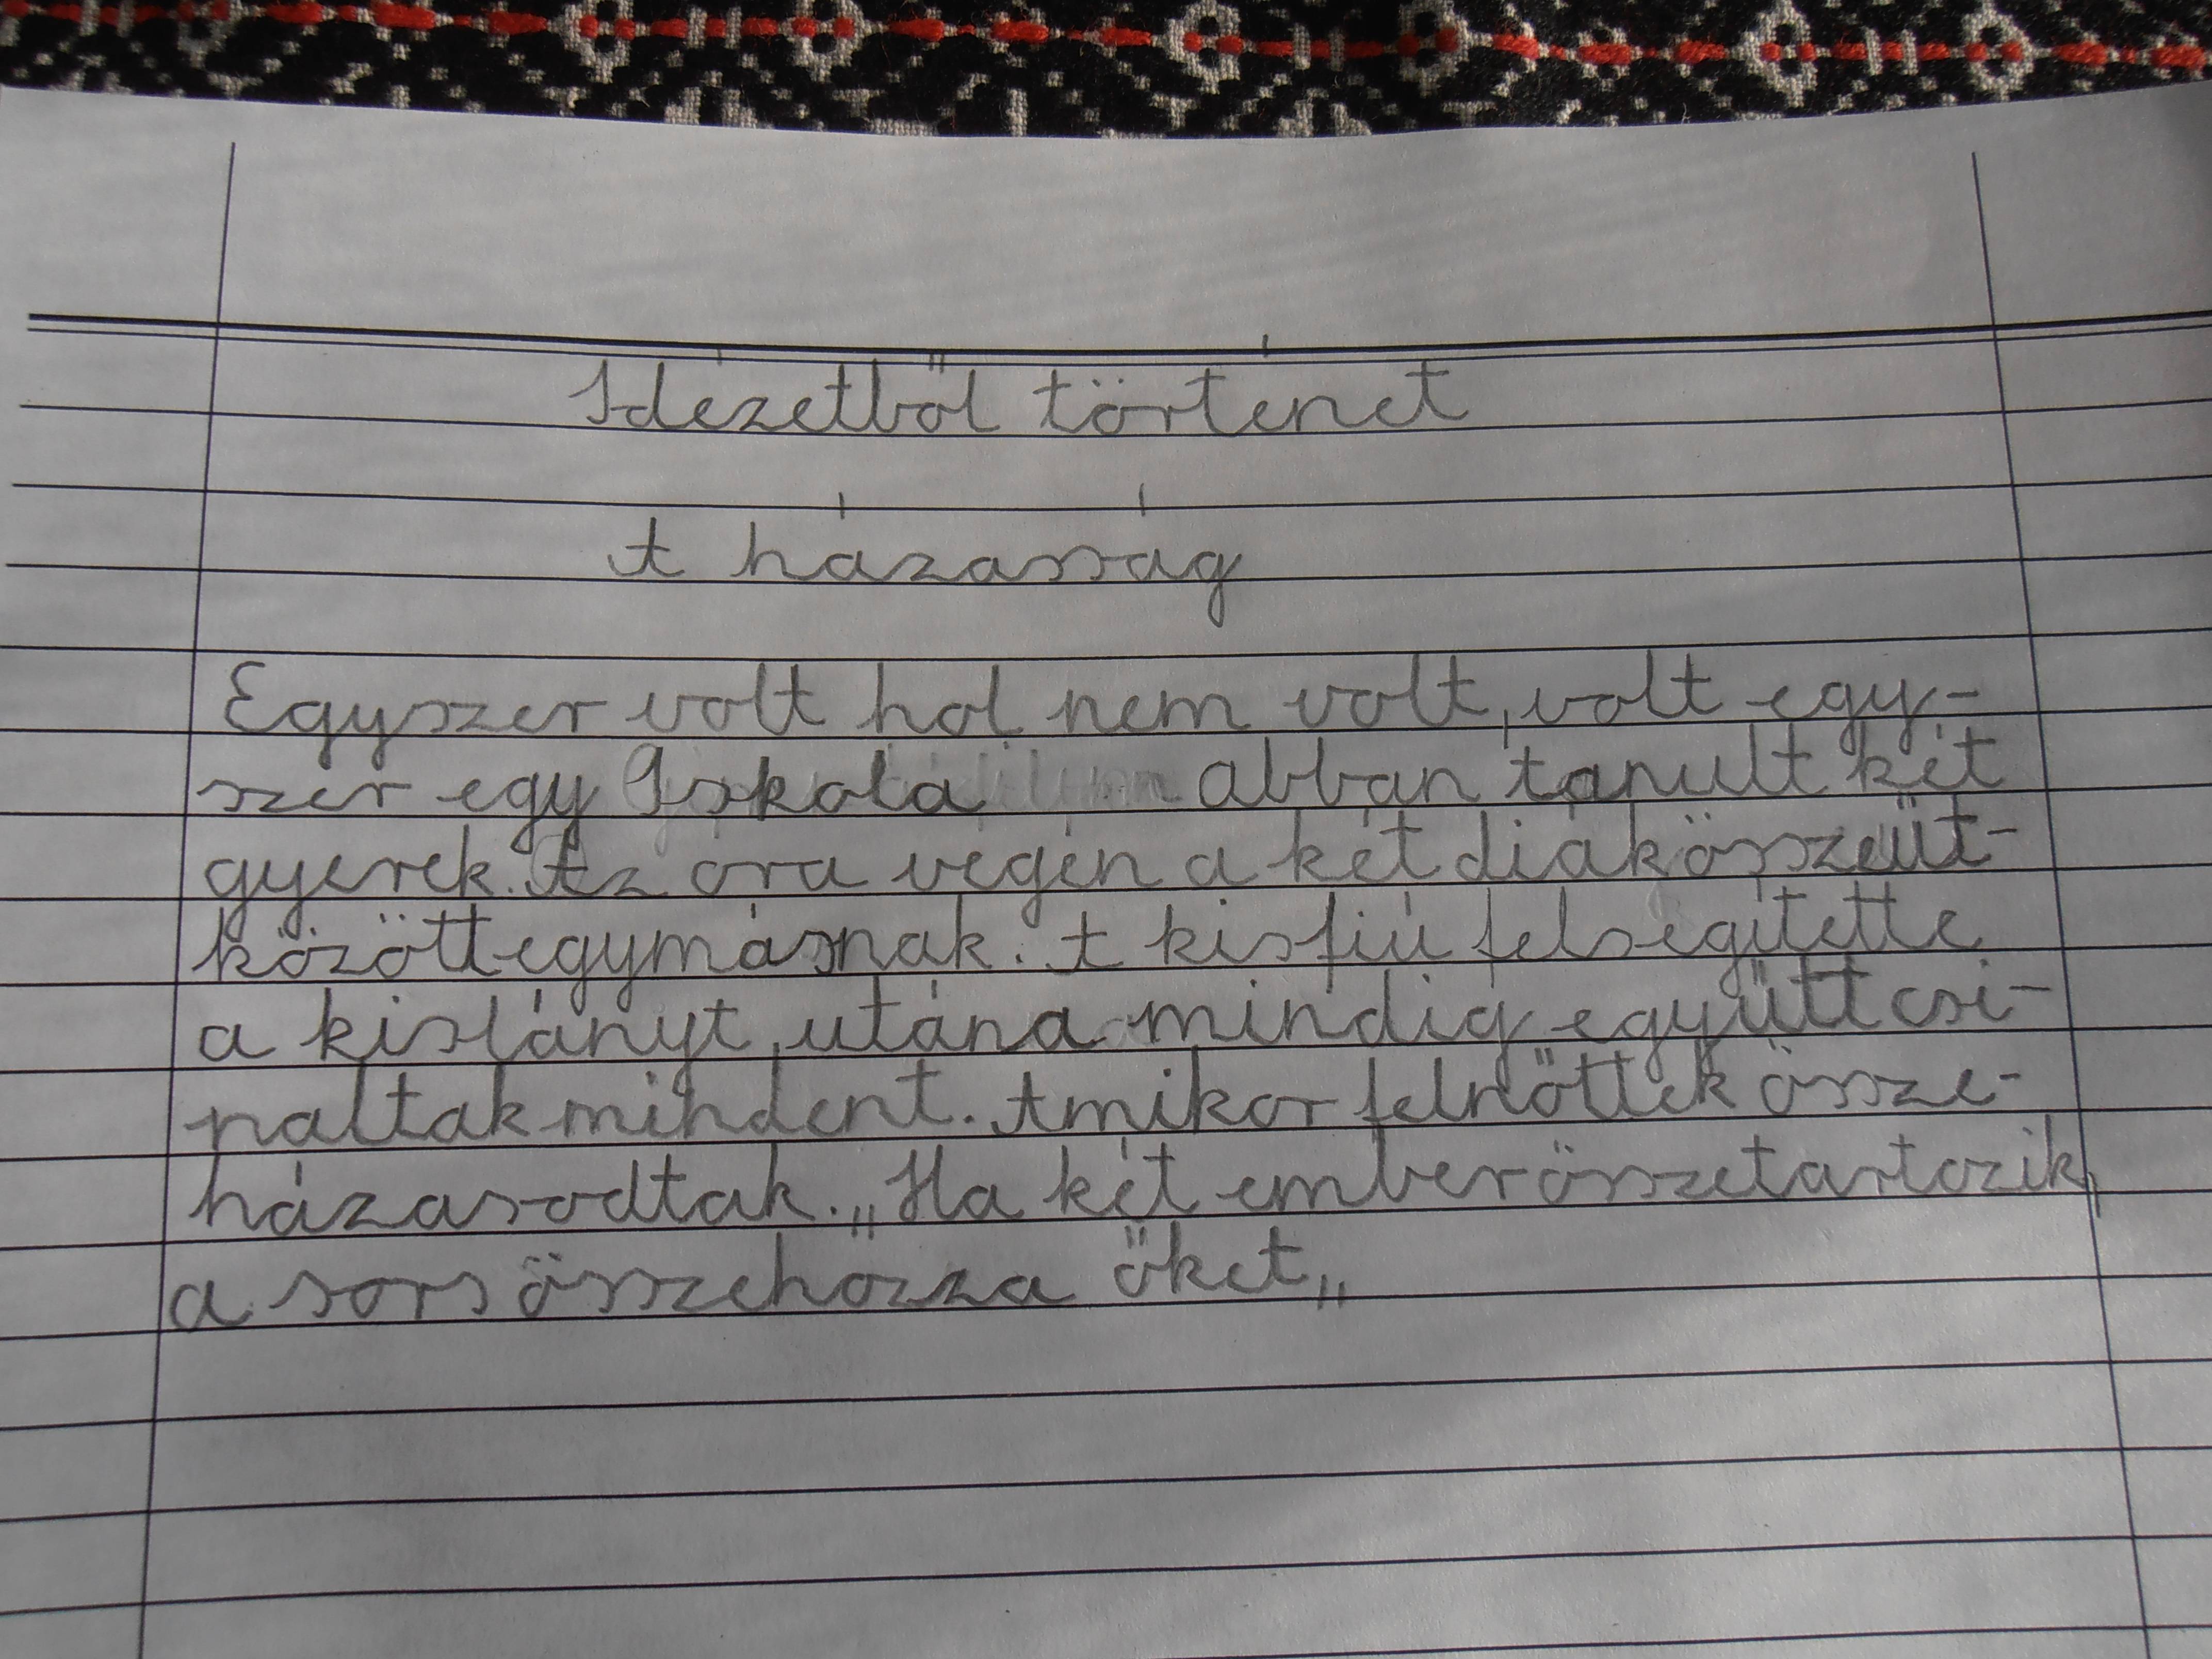 Idézetből történet
A házasság
Egyszer volt hol nem volt, volt egy-
szer egy Iskola abban tanult két
gyerek. Az óra végén a két diák összeüt-
között egymásnak. A kisfiú felsegítette
a kislányt, utána mindig együtt csi-
náltak mindent. Amikor felnőttek össze-
házasodtak. „Ha két ember összetartozik,
a sors összehozza őket„